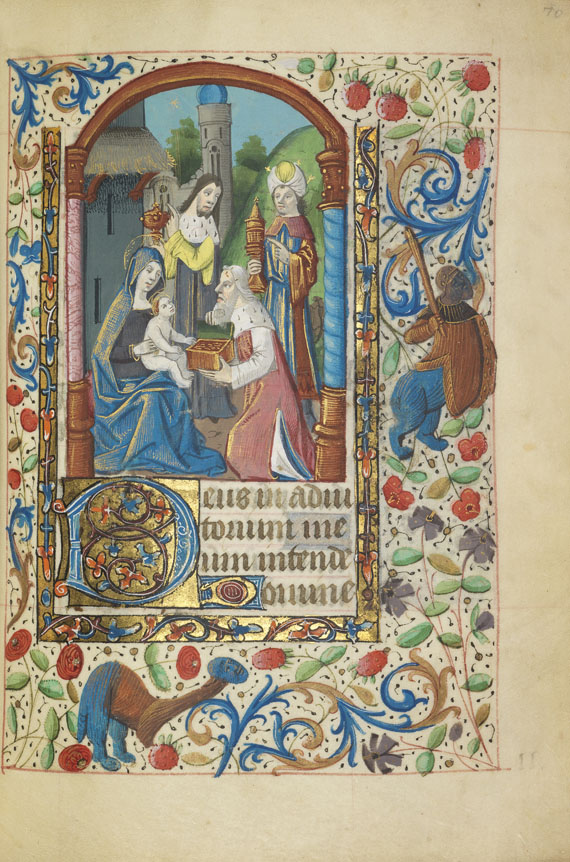 70
Deus in adiu
torium me
um intende
domine